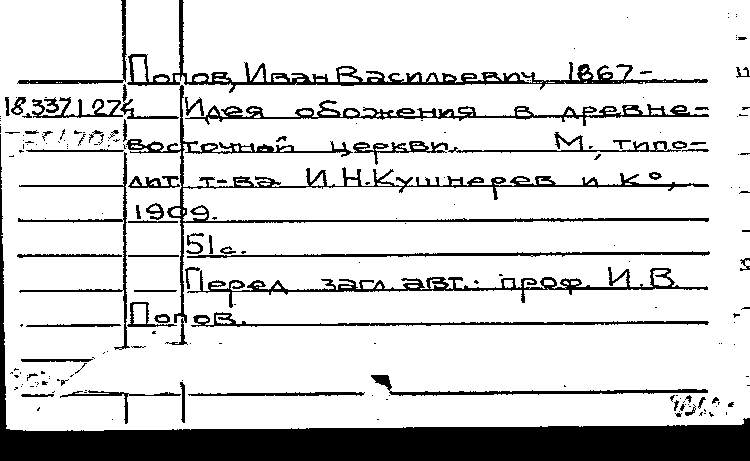 Попов, Иван Васильевич, 1867-
18.337.1.274 Идея обожения в древне-
восточной церкви. М., типо-
лит. т-ва И.Н.Кушнерев и К°,
1909.
51 с.
Перед загл. авт.: проф. И.В.
Попов.